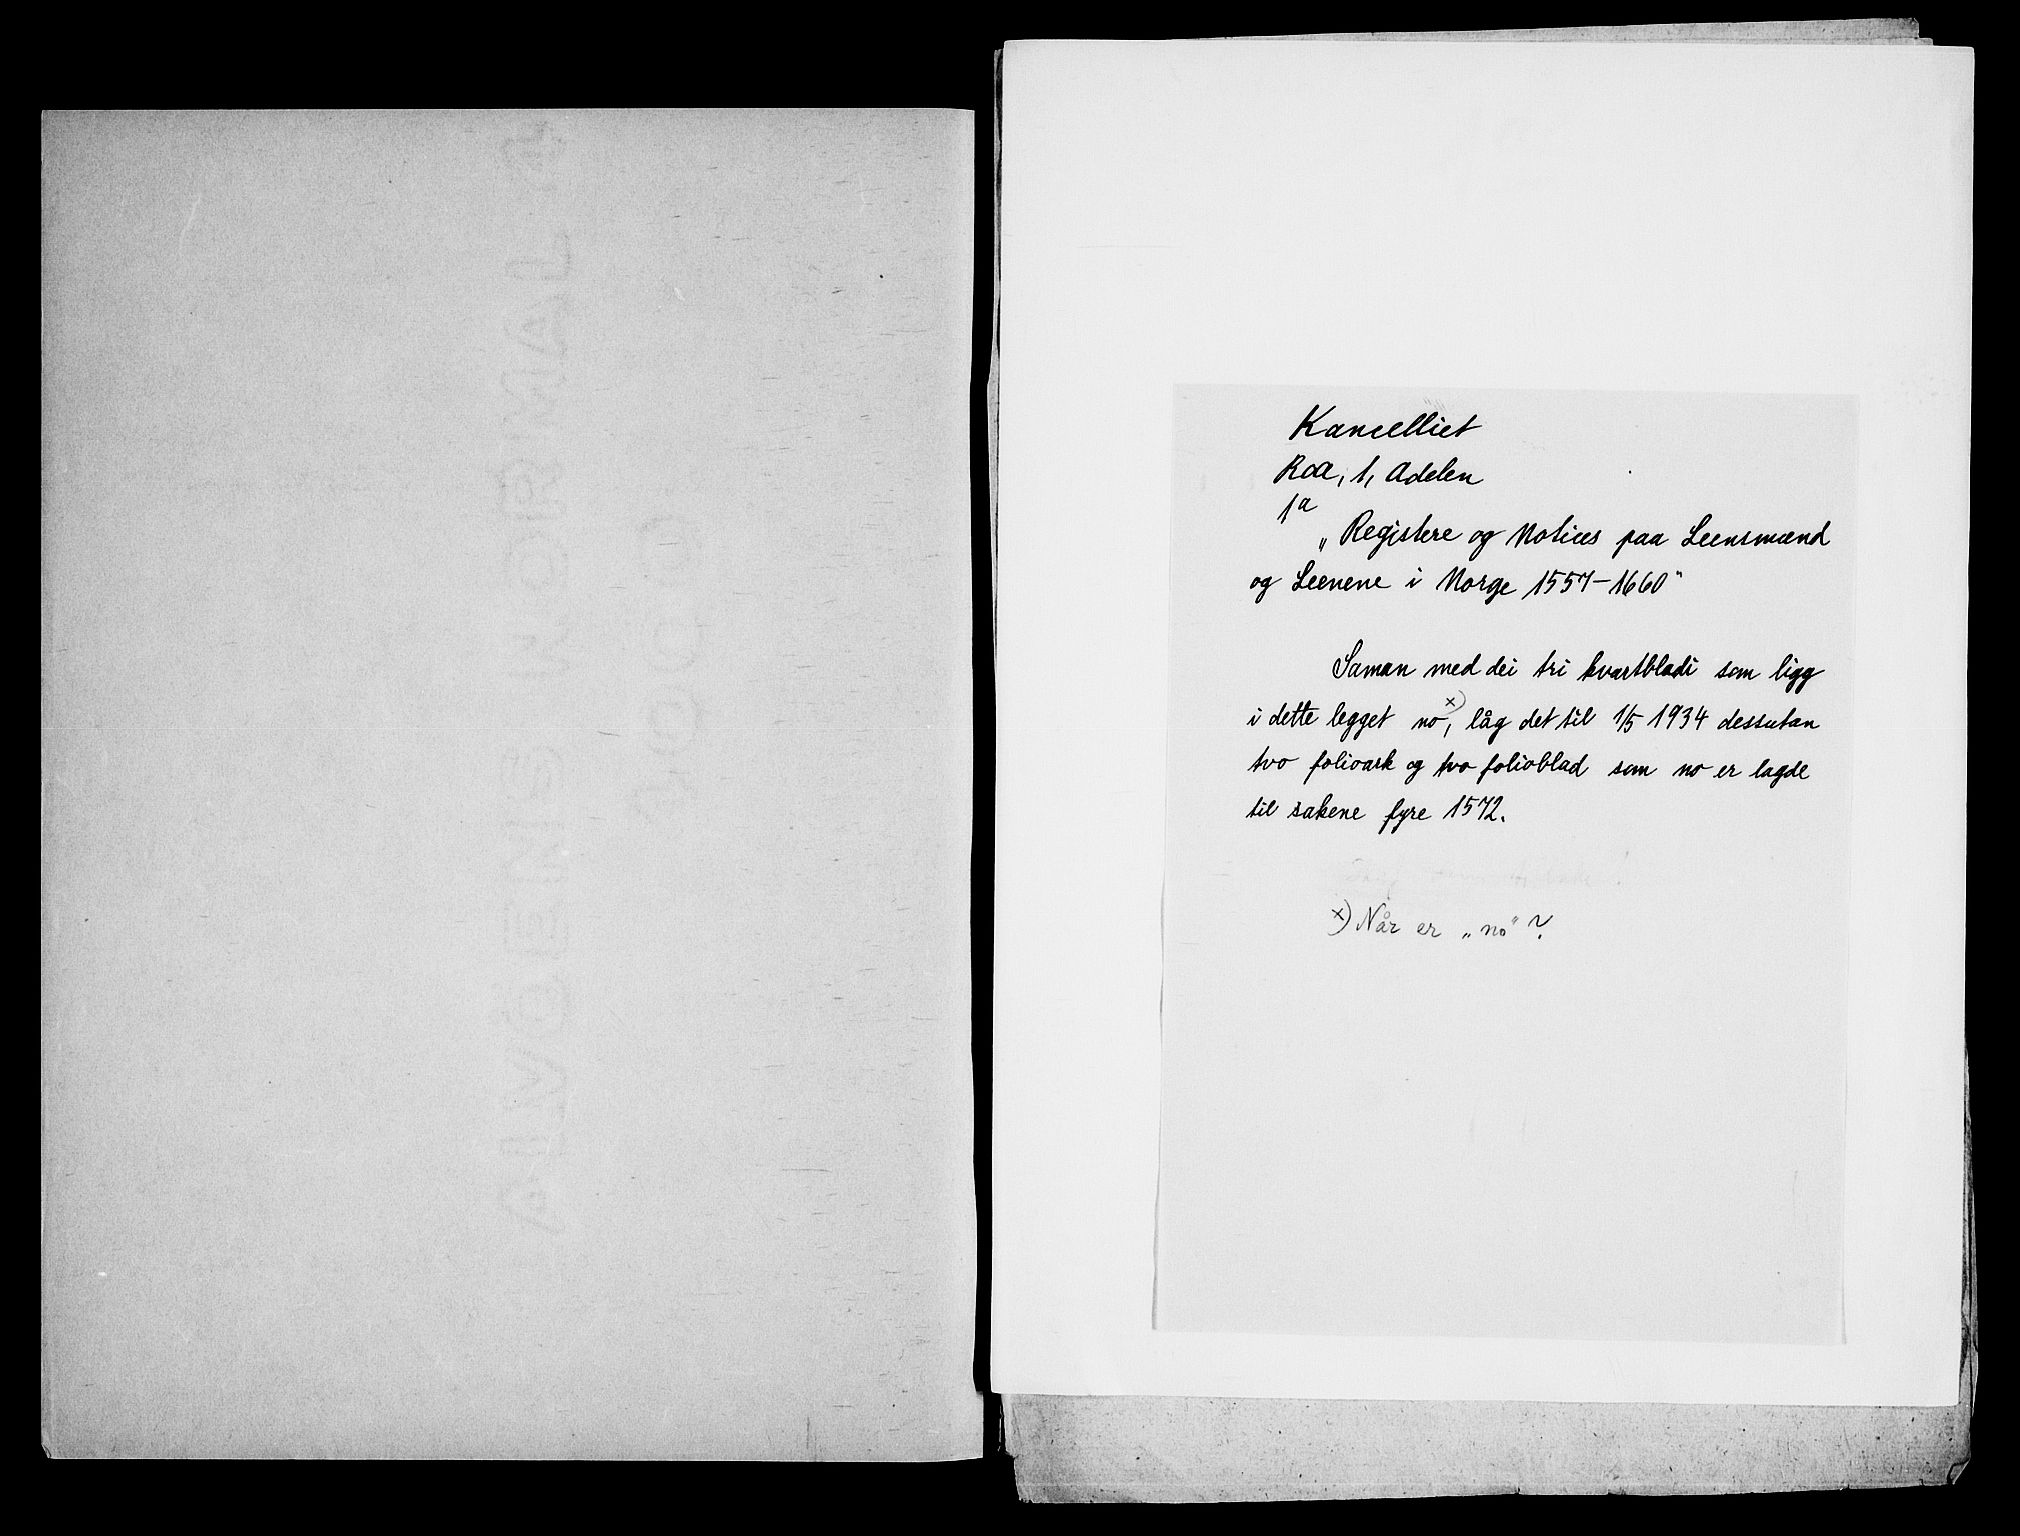 Kancelliet
Roa, 1, Adelen
1a
„Registere og Notices paa Leensmænd
og Leenene i Norge 1557–1660“
Saman med dei tri kvartbladi som ligg
i dette legget no x), låg det til 1/5 1934 dessutan
tvo folioark og tvo folioblad som no er lagde
til sakene fyre 1572.
x) Når er „no“?